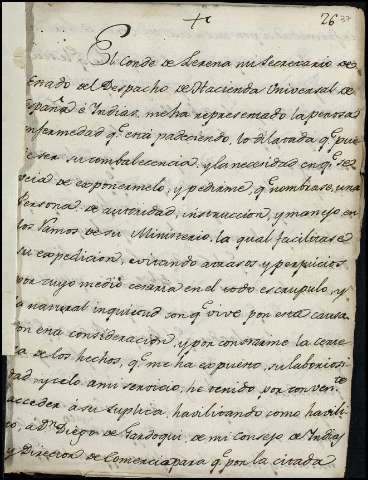 26 37
El Conde de Lerena mi Secretario de
Estado del Despacho de Hacienda Universal de
España é Indias, me ha representado la penosa
enfermedad qe. está padeciendo, lo dilatada qe. pue
de ser su combalecencia, y la necesidad en qe. se
de exponermelo, y pedirme, qe. nombrase, una
Persona de autoridad, instruccion, y manejo en
los Ramos de su Ministerio, la qual facilitase
su expedicion, evitando atrasos, y perjuicios
por cuyo medio cesaria en el todo escrupulo, y
la natural inquietud con qe. vive por esta causa
con esta consideracion, y por constarme la certe
za de los hechos, qe. me ha expuesto, su laboriosi
dad, y celo à mi servicio, he venido por conveniente
acceder à su suplica, havilitando como havili
to, a Dn. Diego de Gardoqui, de mi Consejo de Indias
y Director de Comercio para qe. por la citada